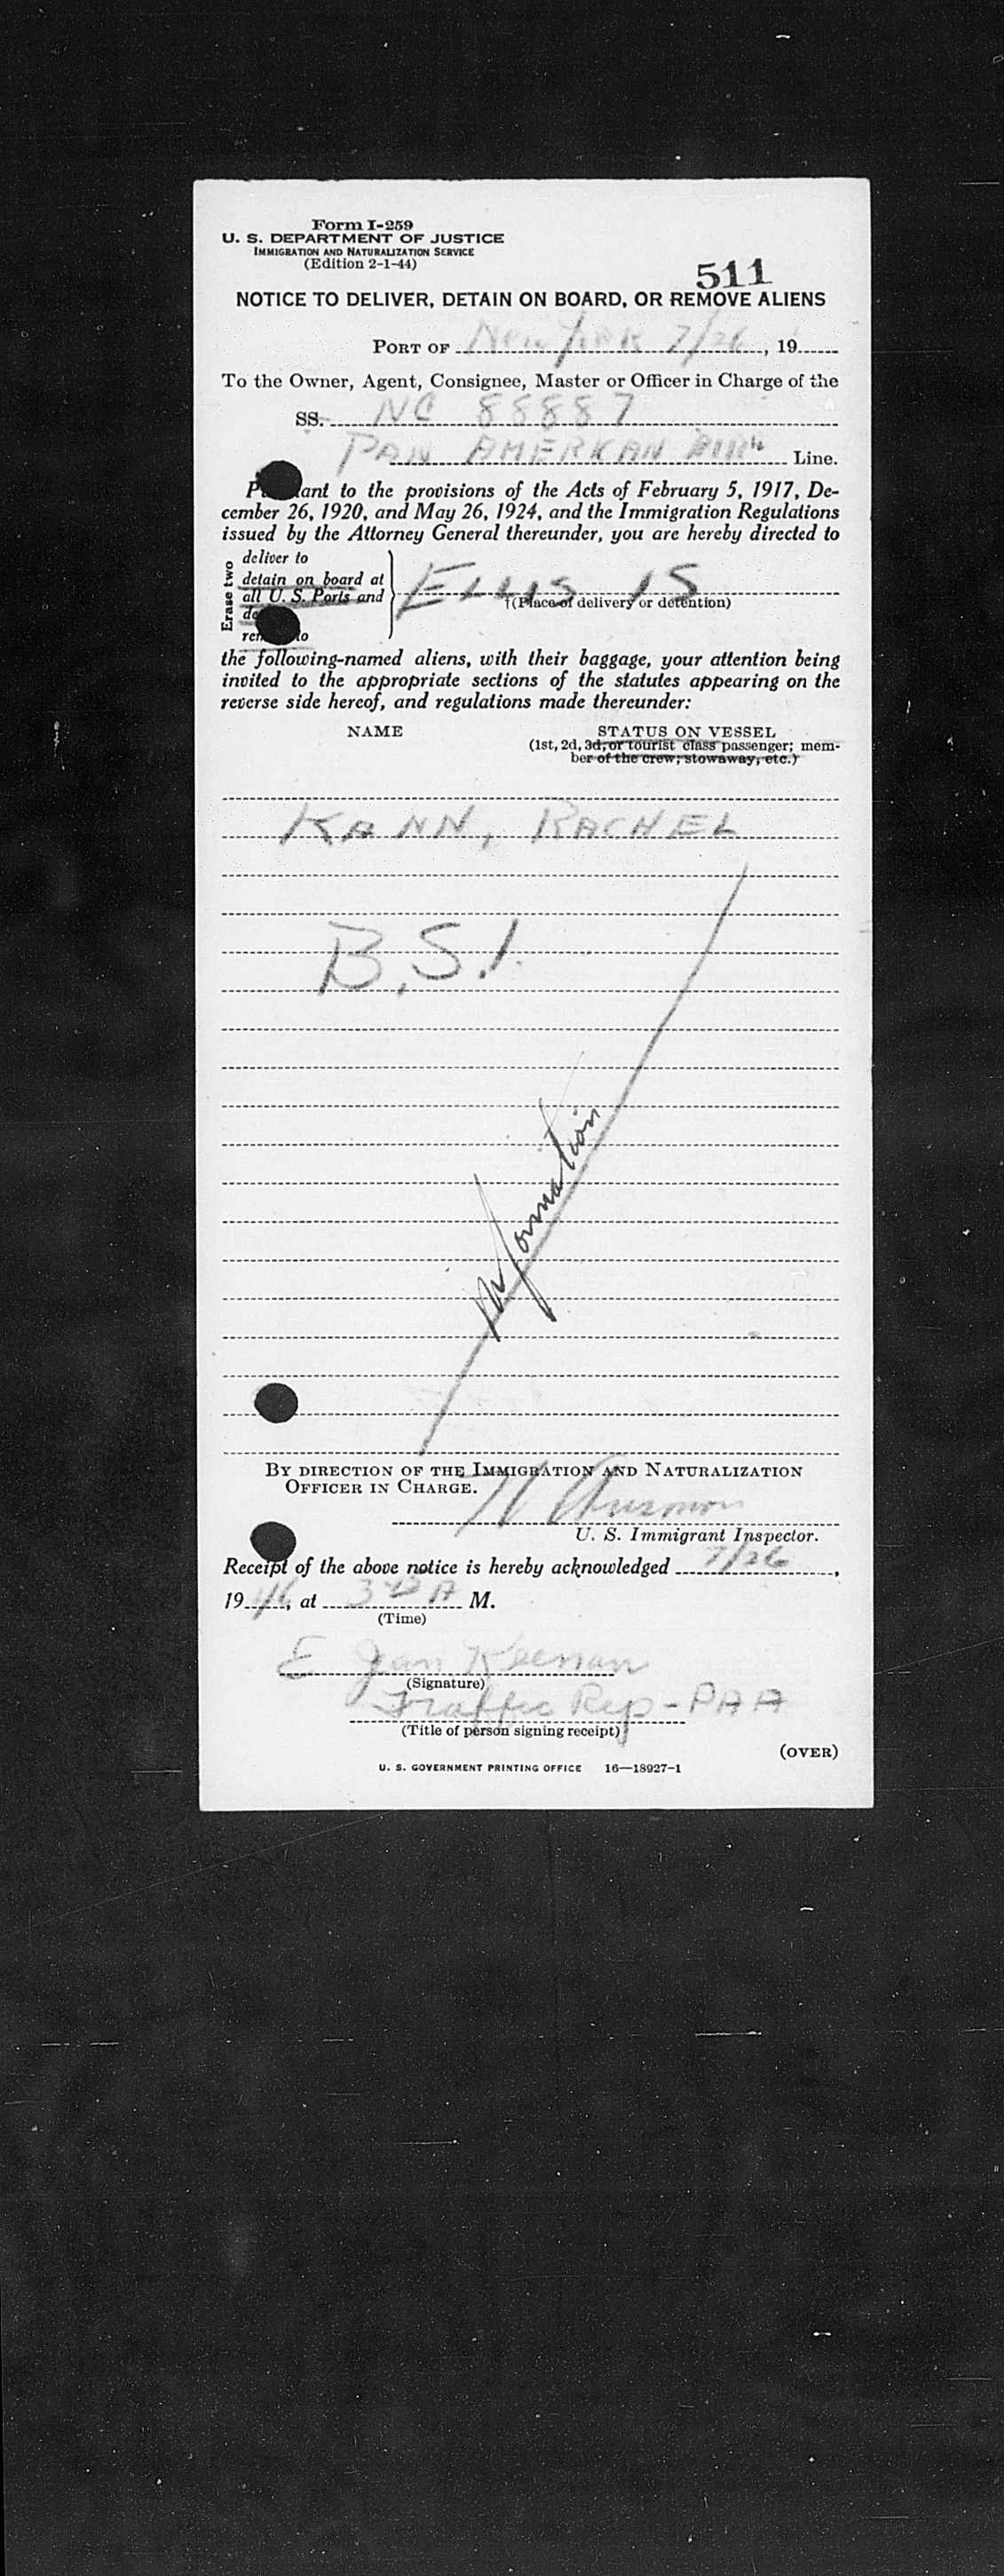 Form I-259
U. S. DEPARTMENT OF JUSTICE
IMMIGRATION AND NATURALIZATION SERVICE
(Edition 2-1-44)
511
NOTICE TO DELIVER, DETAIN ON BOARD, OR REMOVE ALIENS
PORT OF New York 7/26, 19
To the Owner, Agent, Consignee, Master or Officer in Charge of the
SS. NC 88887
PAN AMERICAN Line.
to the provisions of the Acts of February 5, 1917, De-
cember 26, 1920, and May 26, 1924, and the Immigration Regulations
issued by the Attorney General thereunder, you are hereby directed to
Erase two
deliver to
detain on board at
all U. S. Ports and
to
ELLIS IS
†(Place of delivery or detention)
the following-named aliens, with their baggage, your attention being
invited to the appropriate sections of the statutes appearing on the
reverse side hereof, and regulations made thereunder:
NAME STATUS ON VESSEL
(1st, 2d, 3d, or tourist class passenger; mem-
ber of the crew; stowaway, etc.)
KANN, RACHEL
B.S.I.
information
BY DIRECTION OF THE IMMIGRATION AND NATURALIZATION
OFFICER IN CHARGE.
U. S. Immigrant Inspector.
Receipt of the above notice is hereby acknowledged 7/26,
1946, at A M.
(Time)
E Keenan
(Signature)
Traffic Rep - PAA
(Title of person signing receipt)
(OVER)
U. S. GOVERNMENT PRINTING OFFICE 16—18927-1